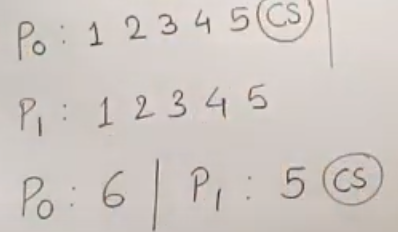 P₀ : 1 2 3 4 5 CS |
P₁ : 1 2 3 4 5
P₀ : 6 | P₁ : 5 CS